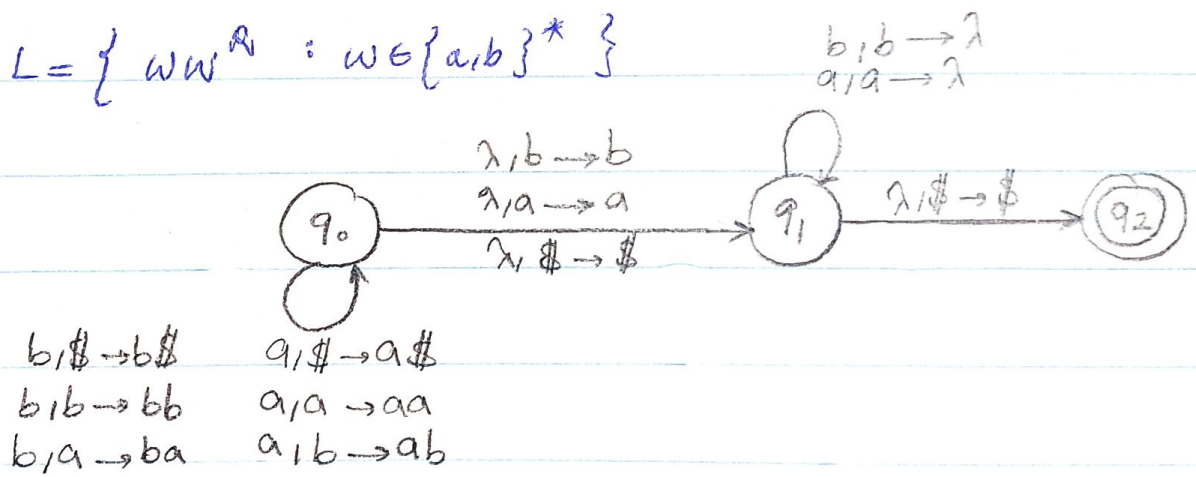 L = { ww^R : w ∈ {a,b}* }
b,b → λ
a,a → λ
λ,b → b
λ,a → a
λ,$ → $
q₀
q₁
λ,$ → $
q₂
b,$ → b$    a,$ → a$
b,b → bb    a,a → aa
b,a → ba    a,b → ab